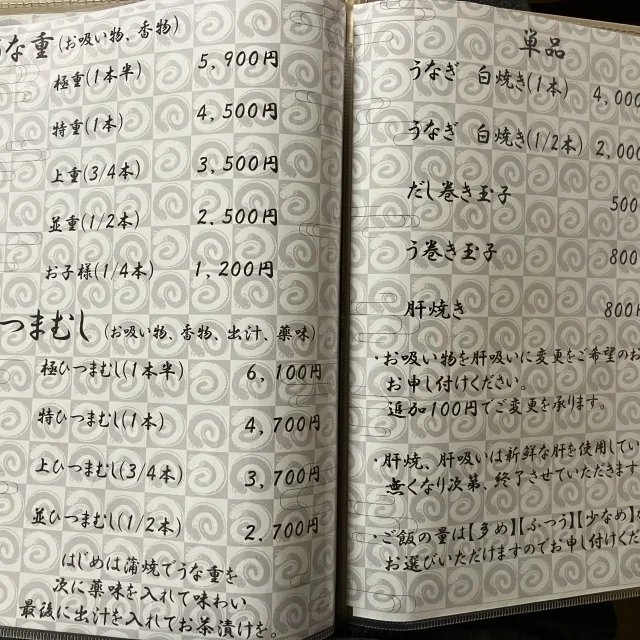 な重(お吸い物、香物)
極重(1本半) 5,900円
特重(1本) 4,500円
上重(3/4本) 3,500円
並重(1/2本) 2,500円
お子様(1/4本) 1,200円
つまむし(お吸い物、香物、出汁、薬味)
極ひつまむし(1本半) 6,100円
特ひつまむし(1本) 4,700円
上ひつまむし(3/4本) 3,700円
並ひつまむし(1/2本) 2,700円
はじめは蒲焼でうな重を
次に薬味を入れて味わい
最後に出汁を入れてお茶漬けを。
単品
うなぎ 白焼き(1本) 4,000
うなぎ 白焼き(1/2本) 2,000
だし巻き玉子 500
う巻き玉子 800
肝焼き 800円
・お吸い物を肝吸いに変更をご希望のお
お申し付けください。
追加100円でご変更を承ります。
・肝焼、肝吸いは新鮮な肝を使用してい
無くなり次第、終了させていただきます
・ご飯の量は【多め】【ふつう】【少なめ】を
お選びいただけますのでお申し付けくだ